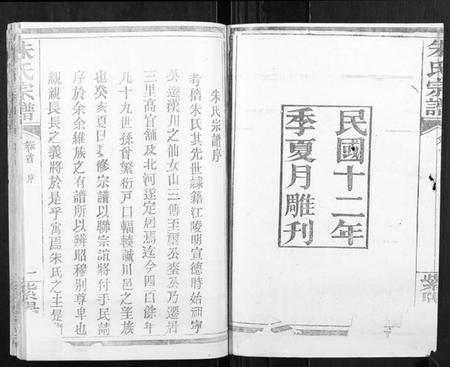 民國十二年
季夏月雕刊
朱氏宗譜
朱氏宗譜
卷首 序
一
朱氏宗譜序
考稽朱氏其先世隷籍江陵明宣德時始祖字
公遷漢川之仙女山三傳至 公 公乃遷居
三里高官舖及北河遂定居焉迄今四百餘年
凡十九世孫曾繁衍戸口輻輳誠川邑之望族
也癸亥夏日 修宗譜以聯宗誼將付手民請
序於余余維族之有譜所以辨昭穆別尊卑也
親親長長之義將於是乎寓焉朱氏之主是